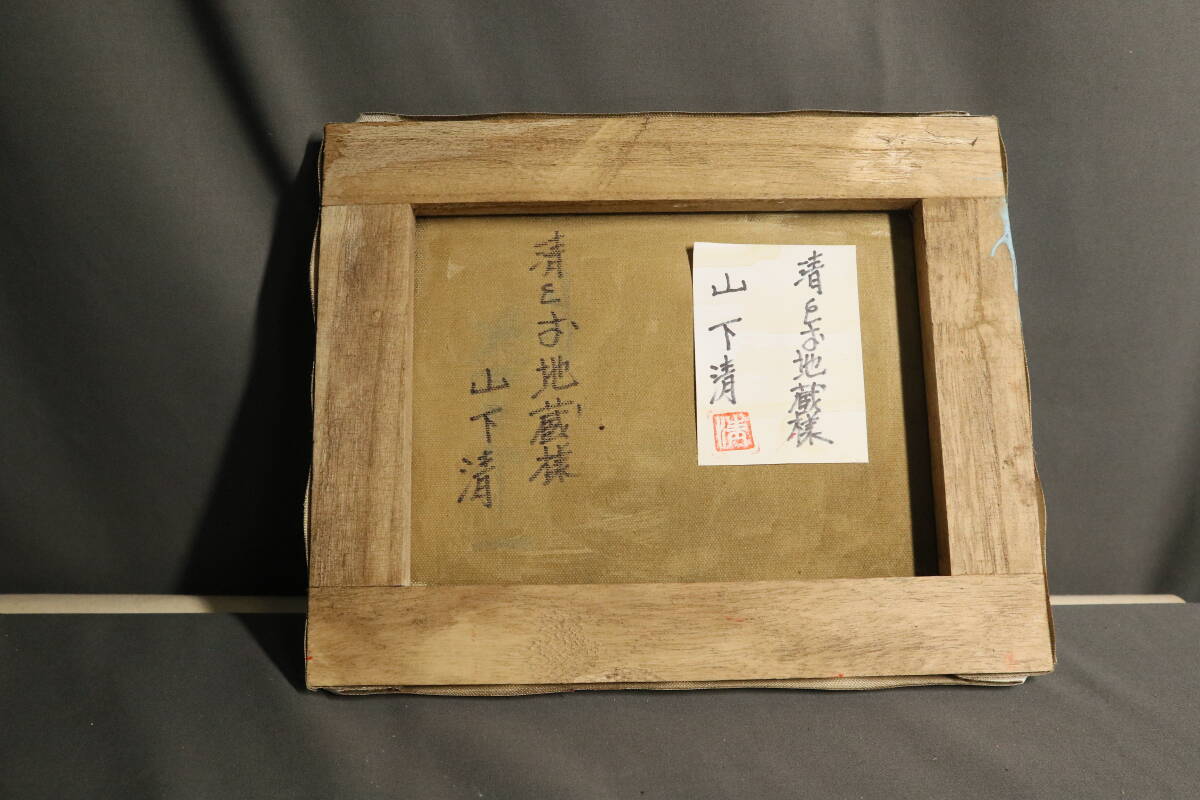 清とお地蔵様
山下清
清
清とお地蔵様
山下清